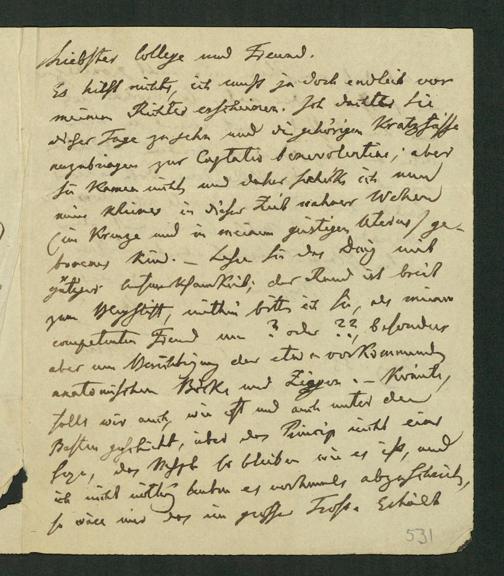 Liebster College und Freund.
Es hilft nichts, ich muß ja doch endlich vor
meinem Richter erscheinen. Ich dachte Sie
dieser Tage zu sehn und die gehörigen Kratzfüsse
anzubringen zur Captatio benevolentiae; aber
Sie kamen nicht und daher schicke ich nun
mein kleines in dieser Zeit wahrer Wehen
(im Kreuze und in meinem geistigen Uterus) ge-
borenes Kind. – Lesen Sie das Ding mit
gütiger Aufmerksamkeit; der Rand ist breit
zum , mithin bitte ich Sie, als meinen
competenten Freund um ? oder ??, besonders
aber um Berichtigung der etwa vorkommenden
anatomischen Böcke und Ziegen. – Könnten,
falls wir auch, wie oft und auch unter den
Besten geschieht, über das Princip nicht einig
, das bleiben wie es ist, und
ich nicht nöthig haben es nochmals abzuschreiben,
so wäre mir das ein großer Trost. Erhält
531